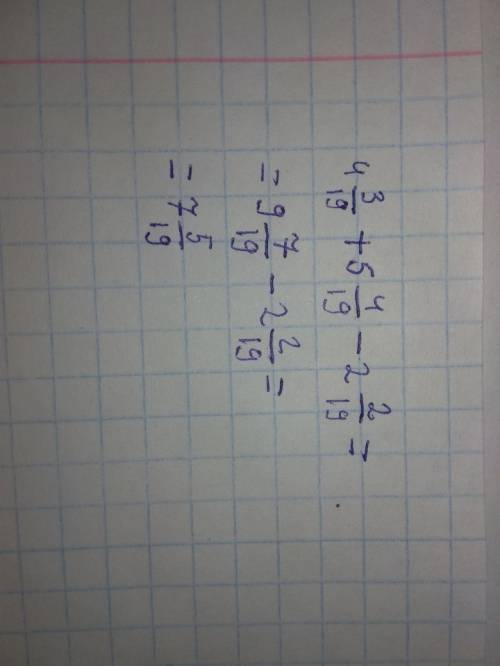 4 3/19 + 5 4/19 - 2 2/19 =
= 9 7/19 - 2 2/19 =
= 7 5/19